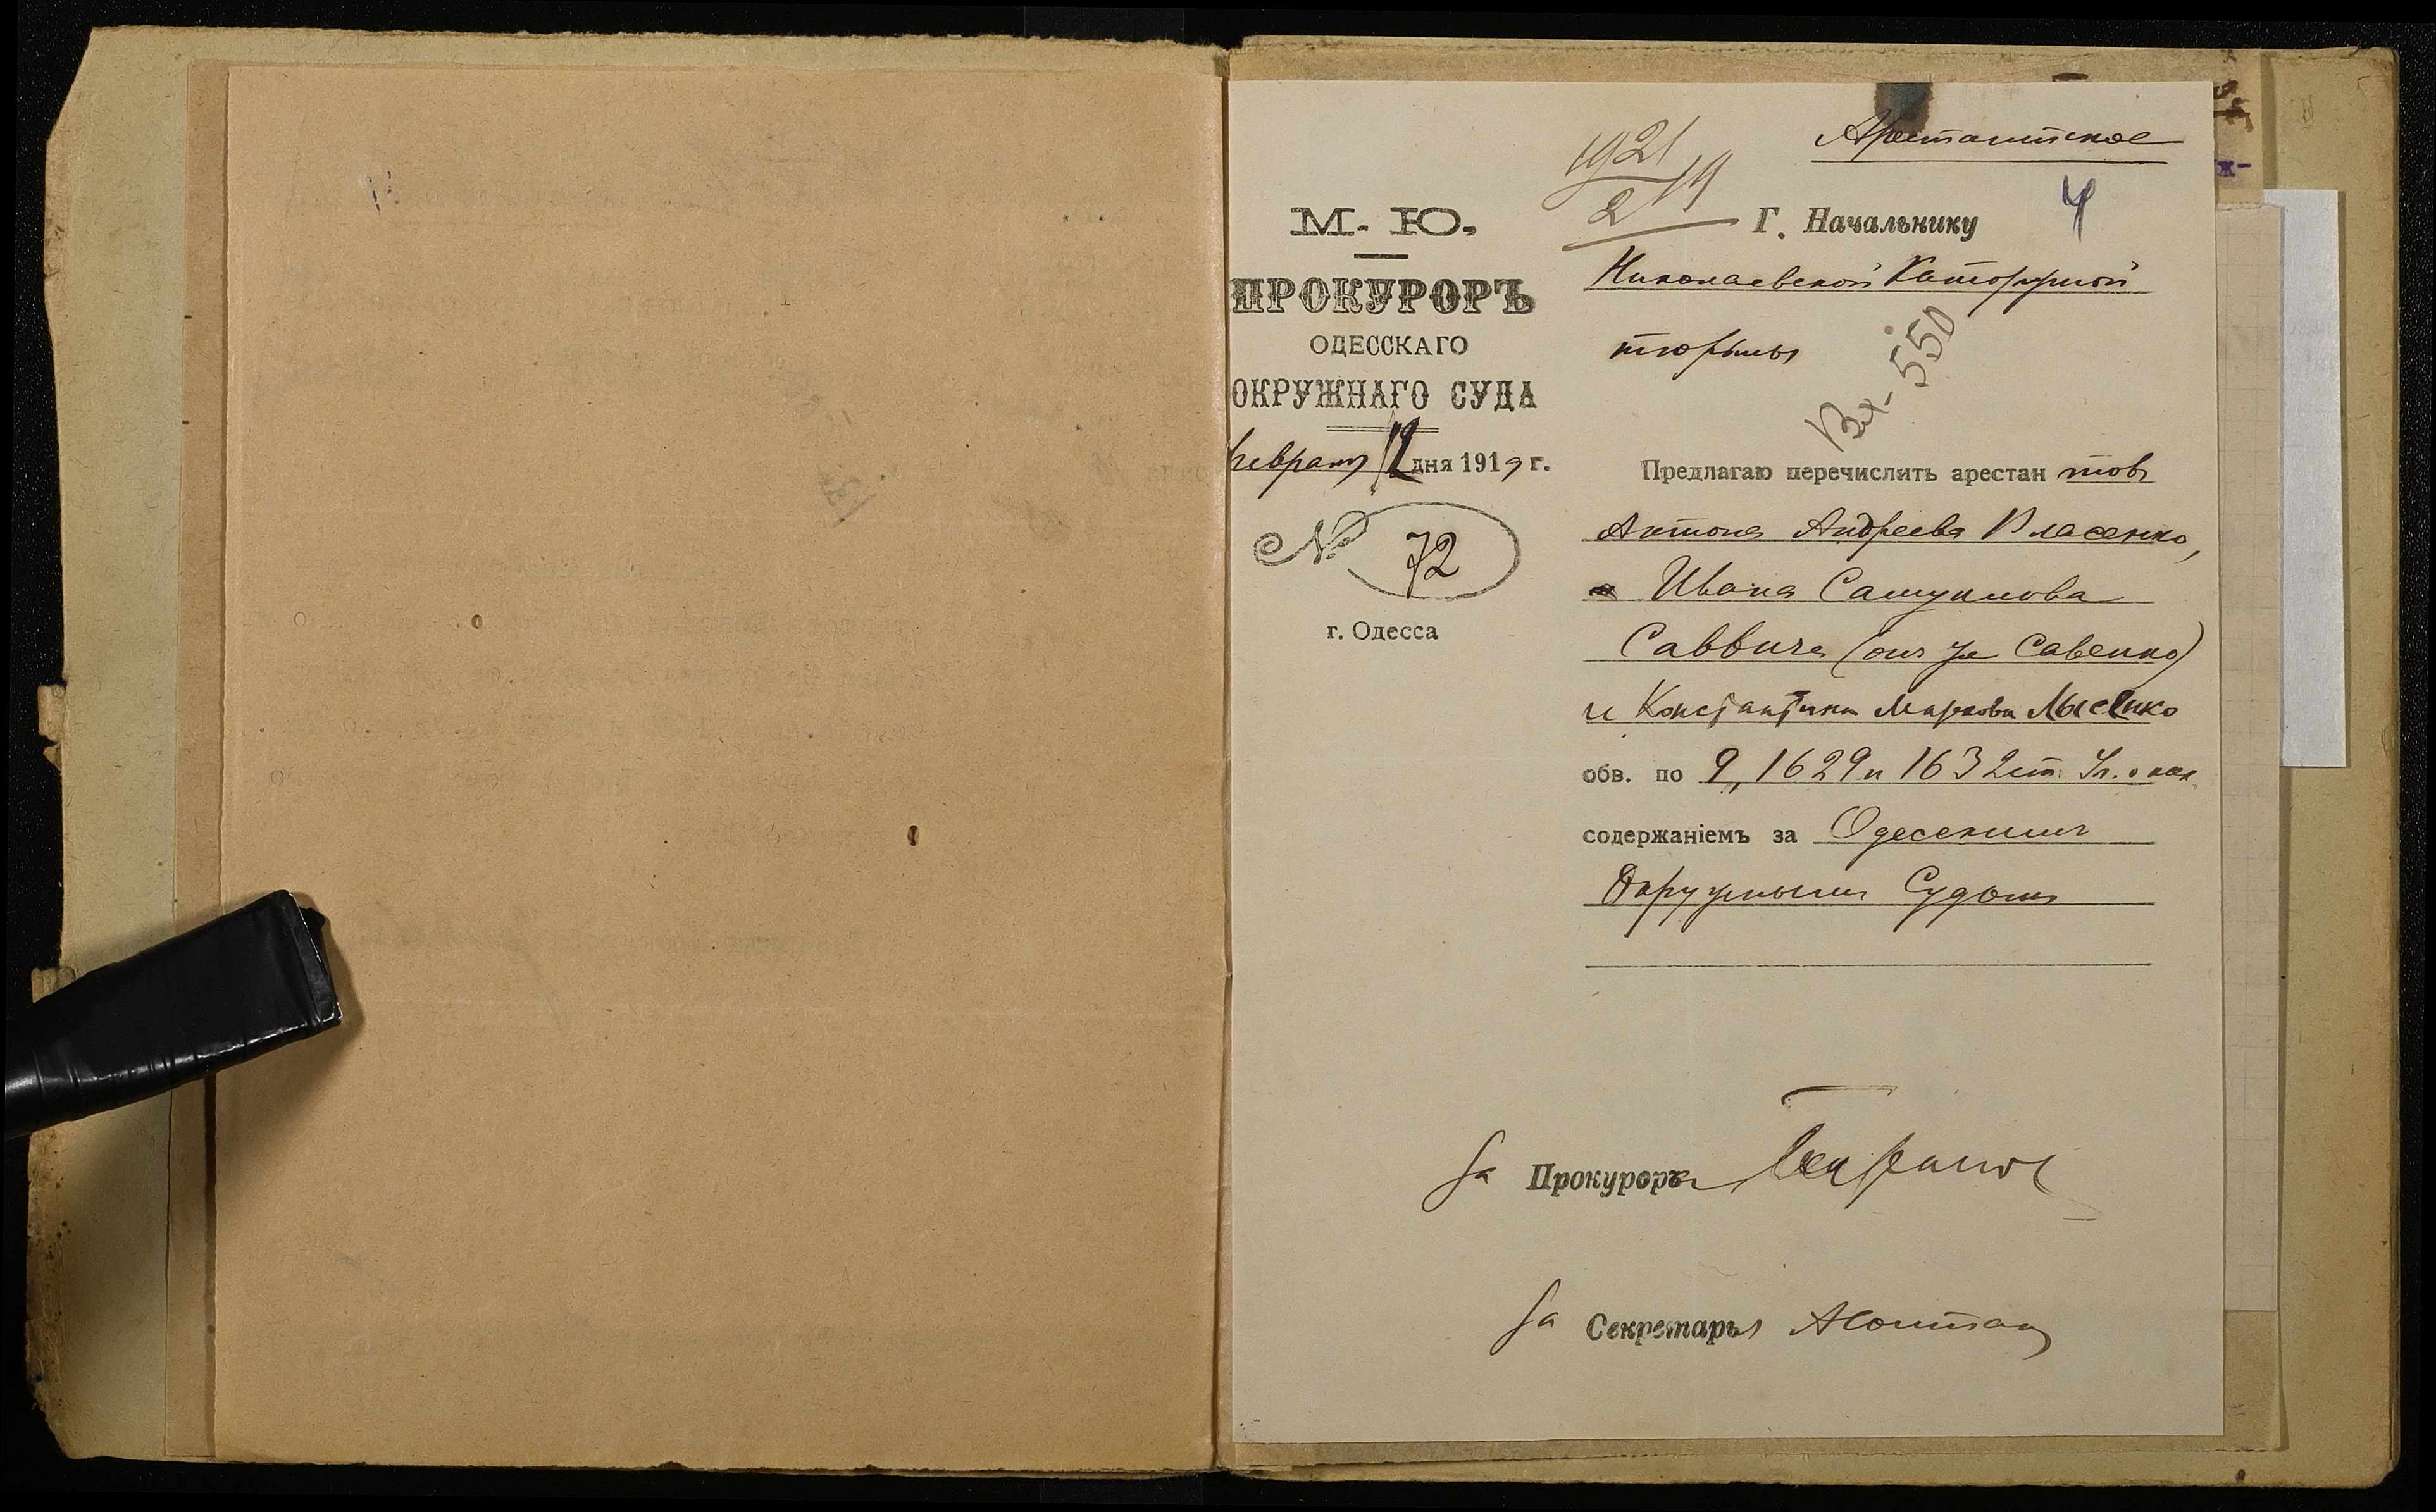 Арестантское
4
М. Ю.
ПРОКУРОРЪ
ОДЕССКАГО
ОКРУЖНАГО СУДА
Февраля 12 дня 1919 г.
№ 72
г. Одесса
Г. Начальнику
Николаевской Каторжной
тюрьмы
Вх-550
Предлагаю перечислить арестан товъ
Антона Андреева Власенко,
Ивана
Саввича (онъ же Савенко)
и Константина Маркова Лысенко
обв. по 9, 1629 и 1632 ст. Ул. о нак.
содержаніемъ за Одесскимъ
Окружнымъ Судомъ
За Прокурора
За Секретаря
ж-